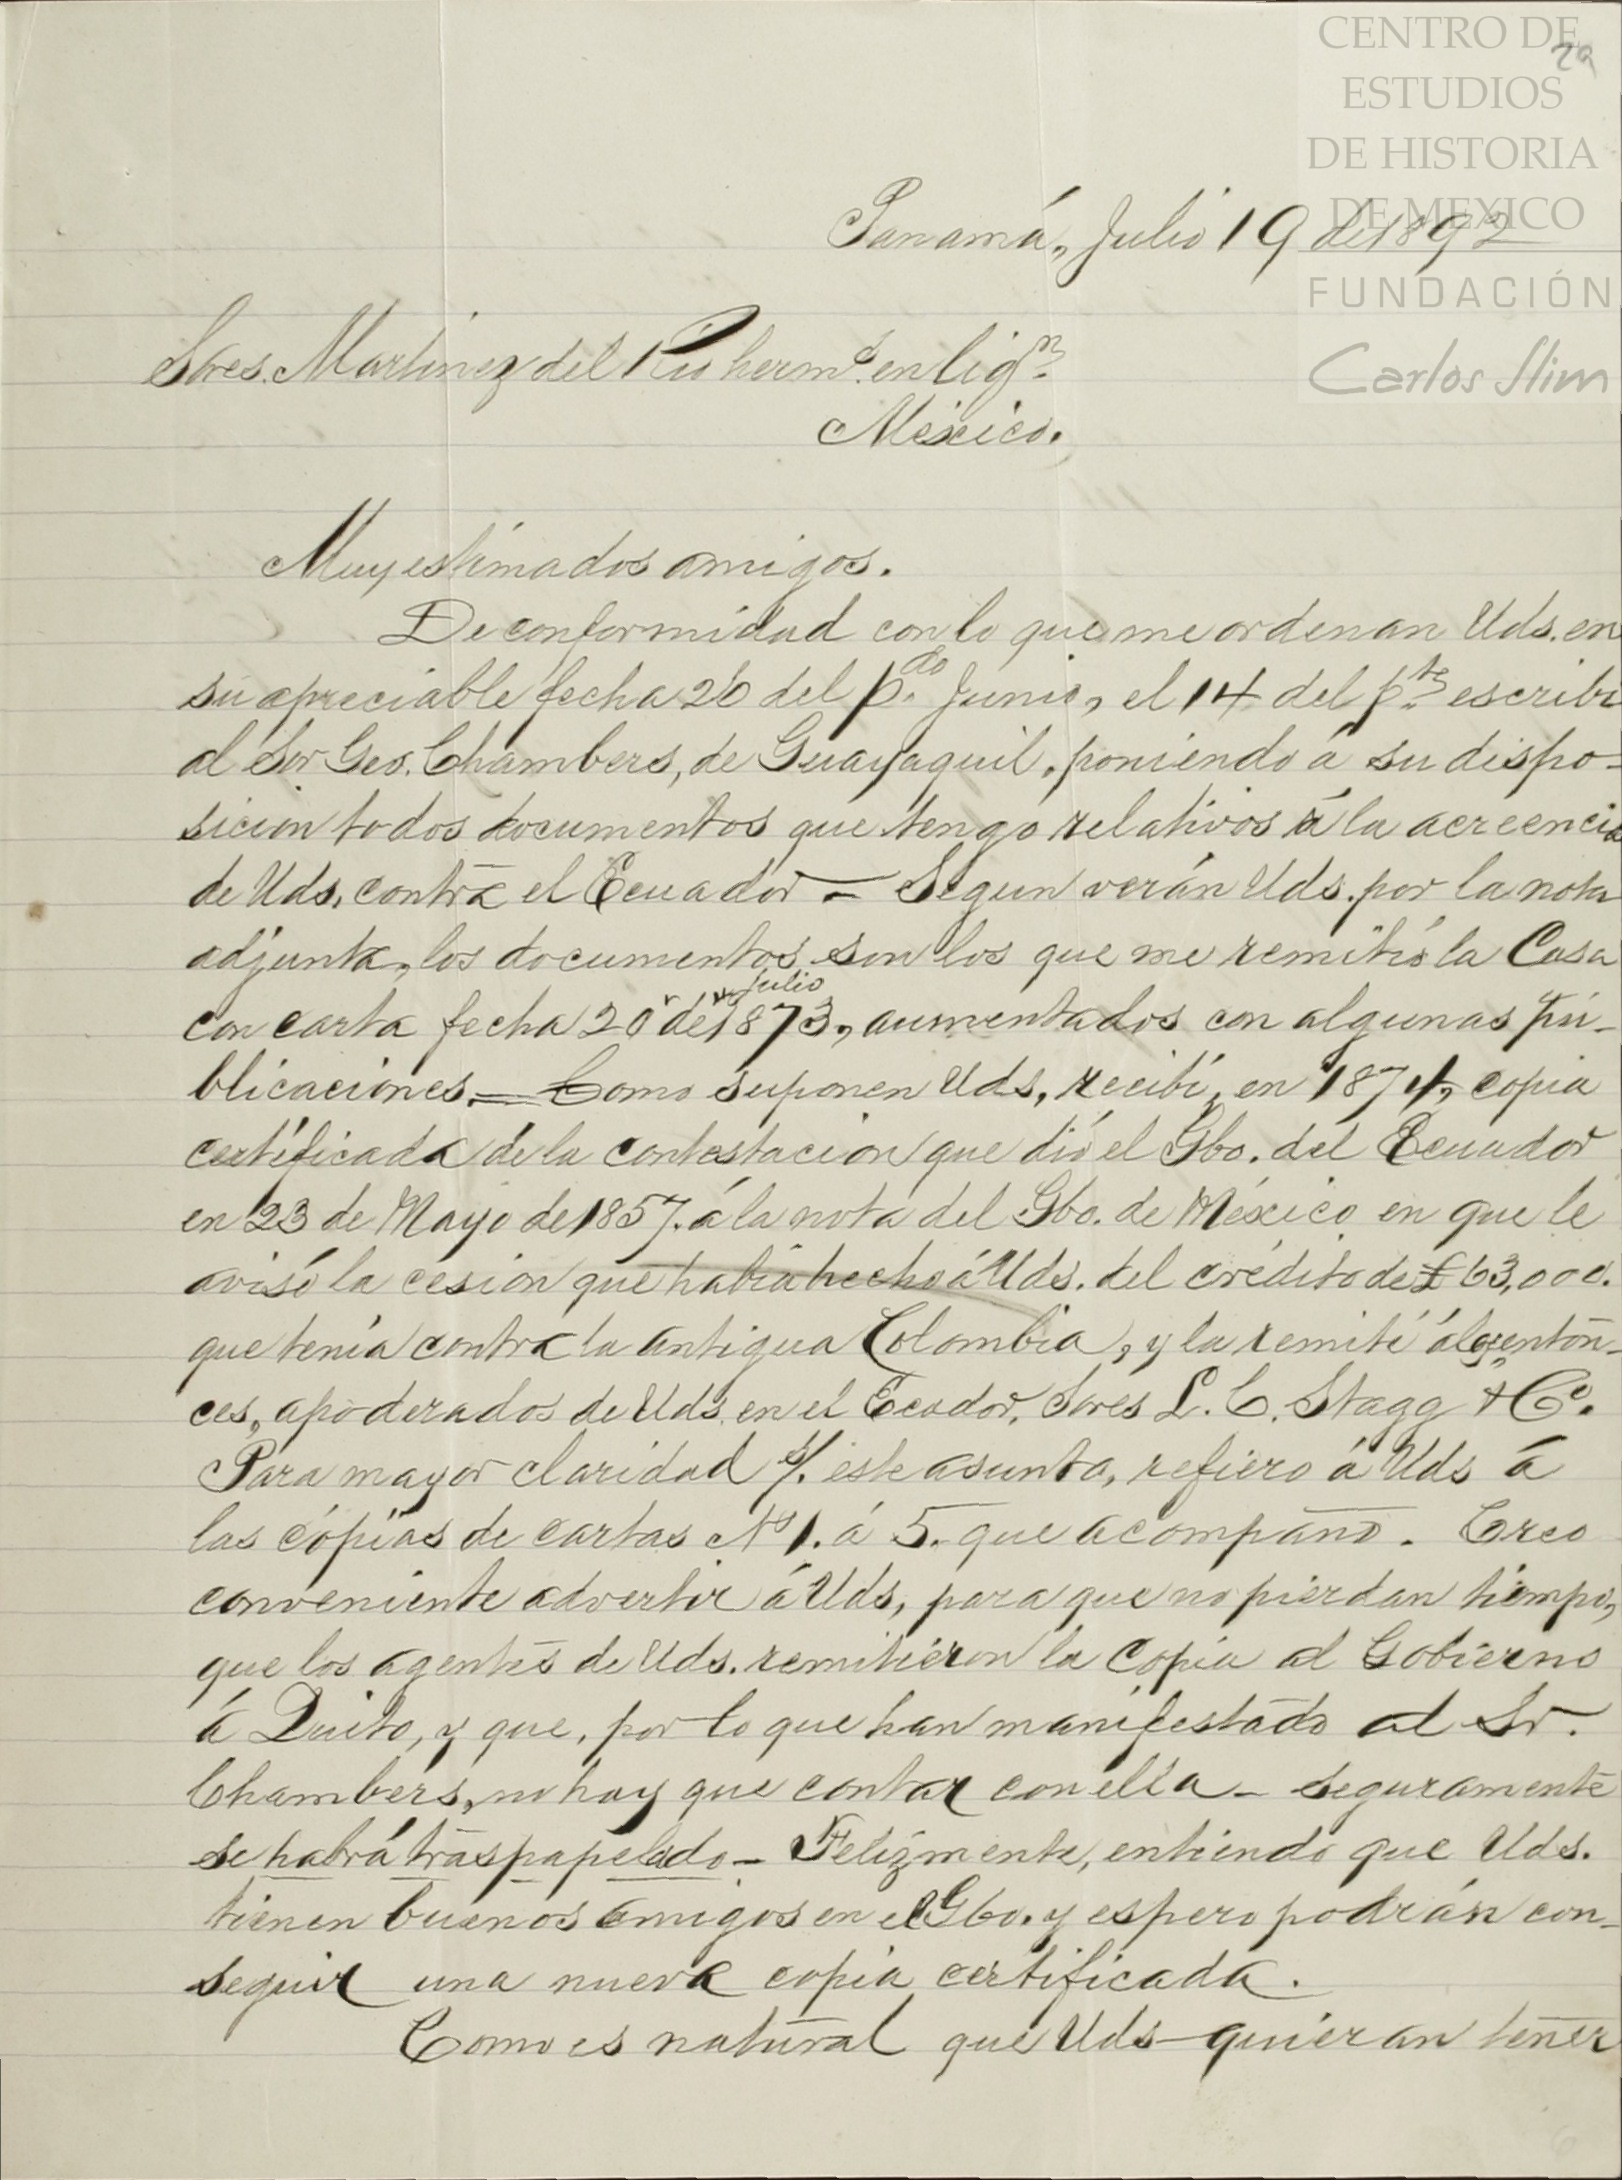 CENTRO DE
ESTUDIOS
DE HISTORIA
DE MEXICO
FUNDACIÓN
Carlos Slim
29
Panamá, Julio 19 de 1892
Sres. Martinez del Rio hermˢ. en liqⁿ.
México.
Muy estimados amigos.
De conformidad con lo que me ordenan Uds. en
su apreciable fecha 26 del p.ᵈᵒ Junio, el 14 del p.ᵗᵉ escribí
al Sor Geo. Chambers, de Guayaquil, poniendo á su dispo-
sicion todos documentos que tengo relativos á la acreencia
de Uds. contra el Ecuador — Segun verán Uds. por la nota
adjunta, los documentos son los que me remitió la Casa
con carta fecha 20 de julio 1873, aumentados con algunas pu-
blicaciones. — Como suponen Uds, recibí, en 1874, copia
certificada de la contestacion que dió el Gbo. del Ecuador
en 23 de Mayo de 1857. á la nota del Gbo. de México en que le
avisó la cesion que habia hecho á Uds. del crédito de £63,000.
que tenía contra la antigua Colombia, y la remití á los, entón-
ces, apoderados de Uds. en el Ecador, Sres L. C. Stagg & Cº.
Para mayor claridad s/. este asunto, refiero á Uds á
las cópias de cartas Nº 1. á 5. que acompaño. Creo
conveniente advertir á Uds, para que no pierdan tiempo,
que los agentes de Uds. remitieron la Copia al Gobierno
á Quito, y que, por lo que han manifestado al Sr.
Chambers, no hay que contar con ella — seguramente
se habrá traspapelado — Felizmente, entiendo que Uds.
tienen buenos amigos en el Gbo. y espero podrán con-
seguir una nueva copia certificada.
Como es natural que Uds quieran tener